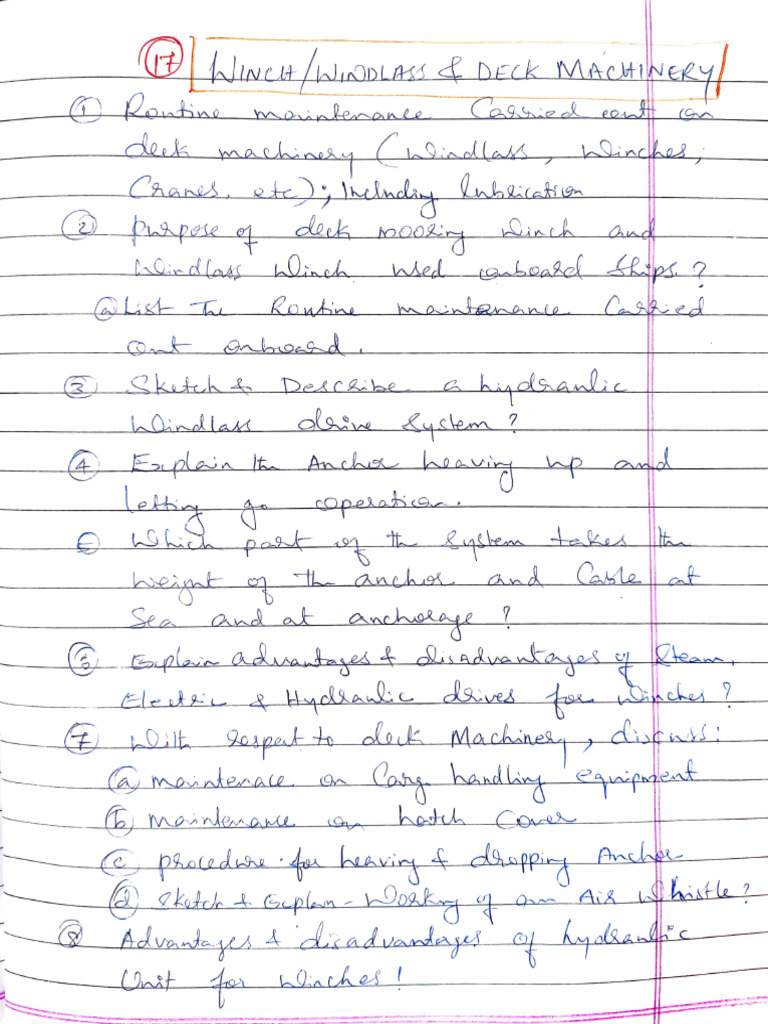 17 WINCH/WINDLASS & DECK MACHINERY
① Routine maintenance Carried out on
deck machinery (Windlass, Winches,
Cranes, etc); Including Lubrication
② Purpose of deck mooring winch and
Windlass Winch used onboard ships?
ⓐ List The Routine maintenance Carried
Out onboard.
③ Sketch & Describe a hydraulic
Windlass drive system?
④ Explain the Anchor heaving up and
letting go operation.
5 Which part of the system takes the
weight of the anchor and Cable at
Sea and at anchorage?
⑥ Explain advantages & disadvantages of Steam,
Electric & Hydraulic drives for winches?
⑦ With respect to deck Machinery, discuss:
ⓐ maintenace on Carg handling equipment
ⓑ maintenance on hatch Cover
ⓒ procedure for heaving & dropping Anchor
ⓓ Sketch & Explain - Working of an Air Whistle?
⑧ Advantages & disadvantages of hydraulic
Unit for winches!